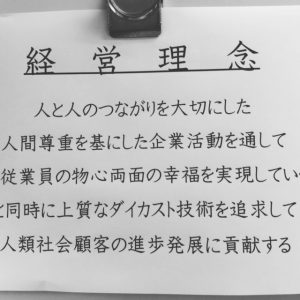 経営理念
人と人のつながりを大切にした
人間尊重を基にした企業活動を通して
従業員の物心両面の幸福を実現してい
と同時に上質なダイカスト技術を追求して
人類社会顧客の進歩発展に貢献する